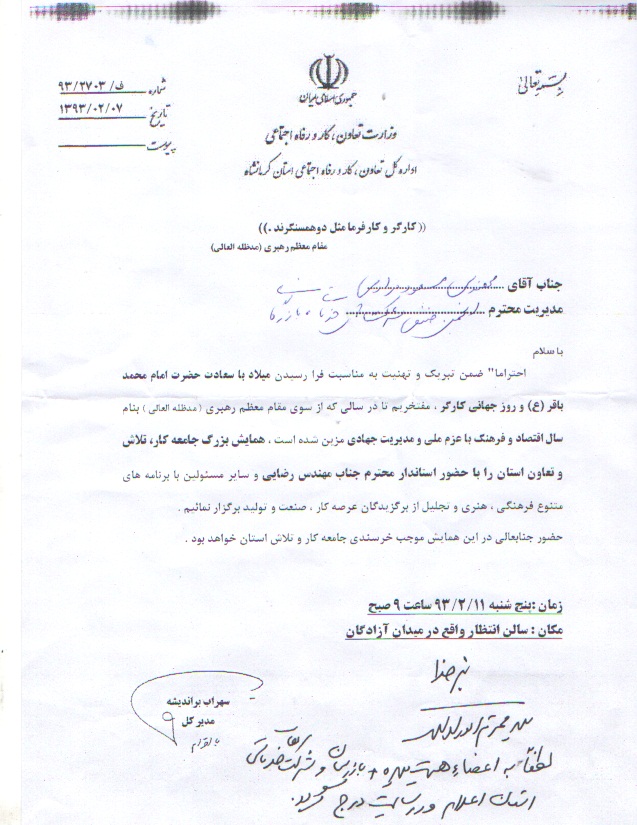 بسمه تعالی
جمهوری اسلامی ایران
وزارت تعاون ، کار و رفاه اجتماعی
اداره کل تعاون ، کار و رفاه اجتماعی استان کرمانشاه
شماره ف/ ۹۳/۲۷۰۳
تاریخ ۱۳۹۳/۰۲/۰۷
پیوست
(( کارگر و کارفرما مثل دوهمسنگرند .))
مقام معظم رهبری (مدظله العالی)
جناب آقای
مدیریت محترم
با سلام
احتراما" ضمن تبریک و تهنیت به مناسبت فرا رسیدن میلاد با سعادت حضرت امام محمد
باقر (ع) و روز جهانی کارگر ، مفتخریم تا در سالی که از سوی مقام معظم رهبری ( مدظله العالی ) بنام
سال اقتصاد و فرهنگ با عزم ملی و مدیریت جهادی مزین شده است ، همایش بزرگ جامعه کار، تلاش
و تعاون استان را با حضور استاندار محترم جناب مهندس رضایی و سایر مسئولین با برنامه های
متنوع فرهنگی ، هنری و تجلیل از برگزیدگان عرصه کار ، صنعت و تولید برگزار نمائیم .
حضور جنابعالی در این همایش موجب خرسندی جامعه کار و تلاش استان خواهد بود .
زمان :پنج شنبه ۹۳/۲/۱۱ ساعت ۹ صبح
مکان : سالن انتظار واقع در میدان آزادگان
سهراب براندیشه
مدیر کل
لطفاً به اعضاء هیئت مدیره + بازرسان و شرکت
استان اعلام و در سایت درج